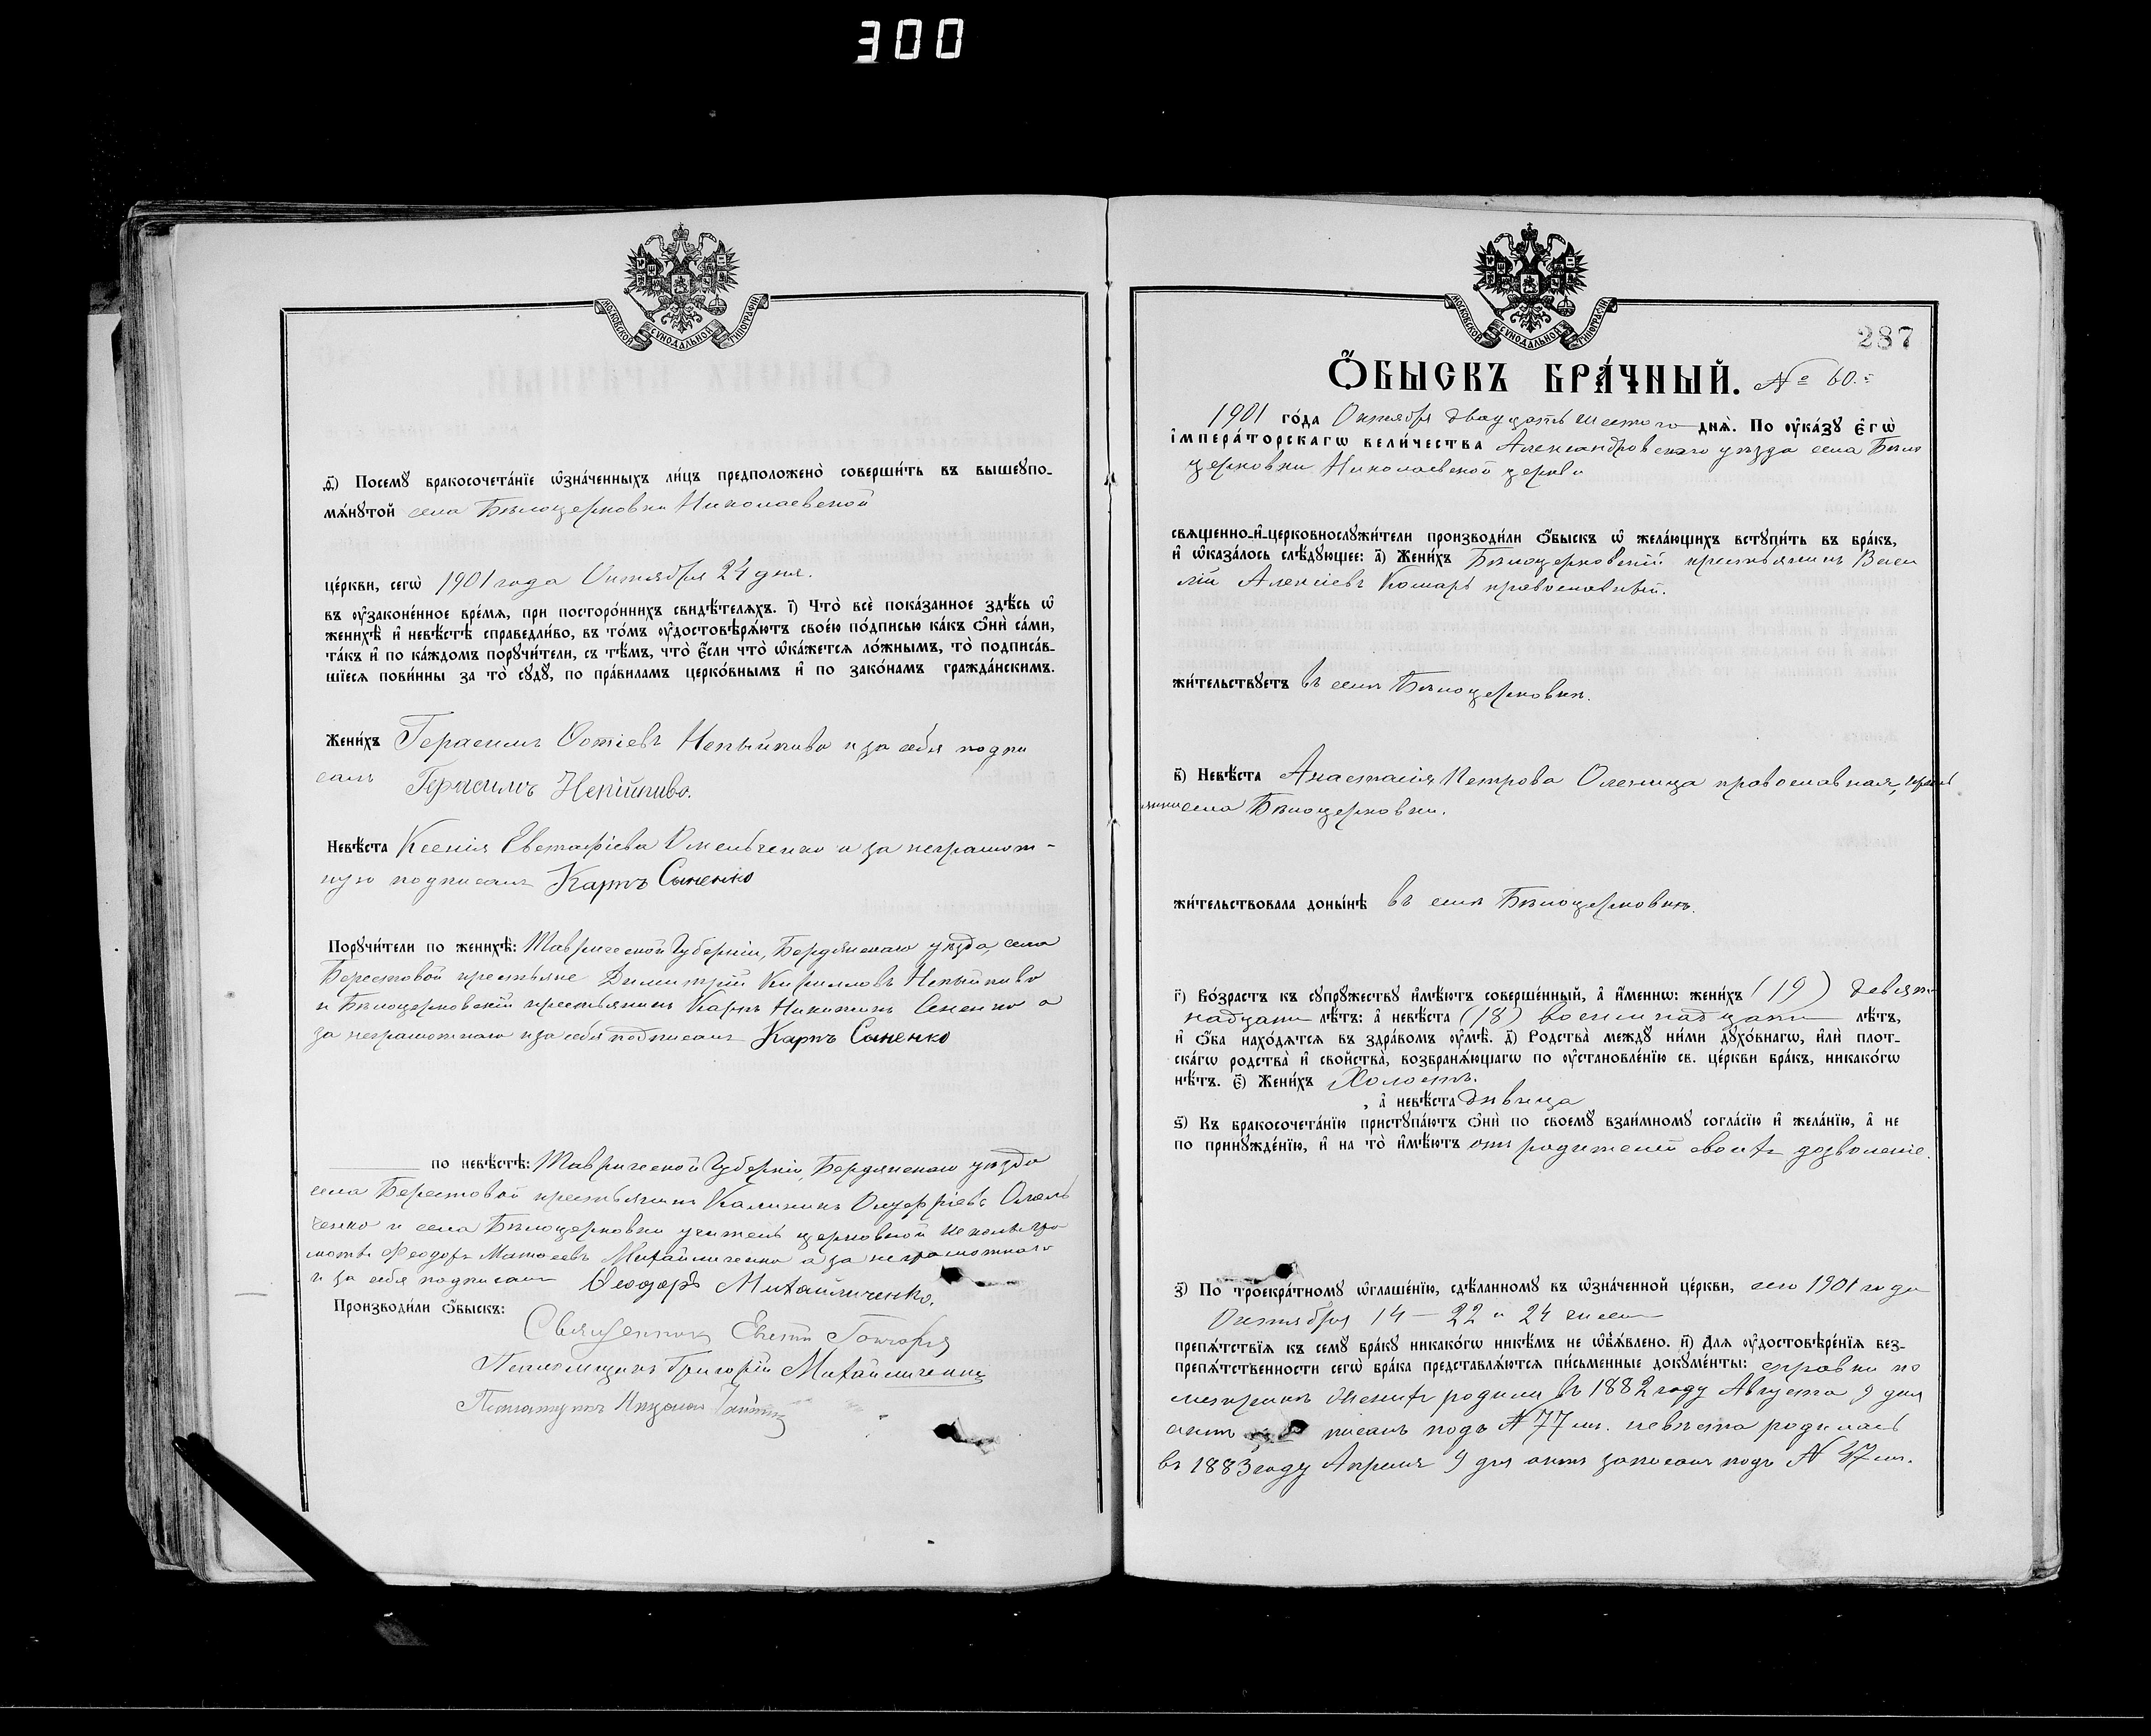 300
МОСКОВСКОЙ СѴНОДАЛЬНОЙ ТИПОГРАФІИ
ѳ҃) Посемꙋ бракосочета́нїе ѡ҆зна́ченныхъ ли́цъ предположено̀ соверши́ть въ вышеꙋпо-
мѧ́нꙋтой села Бѣлоцерковки Николаевской
це́ркви, сегѡ̀ 1901 года Октября 24 дня.
въ ᲂу҆зако́не́нное вре́мѧ, при посторо́ннихъ свидѣ́телѧхъ. і҃) Что̀ всѐ пока́занное здѣ́сь ѡ҆
женихѣ̀ и҆ невѣ́стѣ справедли́во, въ то́мъ ᲂу҆достовѣрѧ́ютъ свое́ю по́дписью ка́къ ѻ҆нѝ са́ми,
та́къ и҆ по ка́ждомъ порꙋчи́тели, съ тѣ́мъ, что̀ є҆́сли что̀ ѡ҆ка́жетсѧ ло́жнымъ, то̀ подписа́в-
шїесѧ пови́нны за то̀ сꙋдꙋ̀, по пра́виламъ церко́внымъ и҆ по зако́намъ гражда́нскимъ.
Жени́хъ Герасимъ Фотіевъ Непыйпиво и за себя подпи
салъ Герасимъ Непійпиво.
Невѣ́ста Ксенія Евстафіева Омельченко а за неграмот-
ную подписалъ Карпъ Сыненко
Порꙋчи́тели по женихѣ̀: Таврической Губерніи, Бердянскаго уѣзда, села
Берестовой крестьяне Димитрій Кирилловъ Непыйпиво
и Бѣлоцерковскій крестьянинъ Карпъ Никитинъ Сененко а
за неграмотнаго и за себя подписалъ Карпъ Сыненко
по невѣ́стѣ: Таврической Губерніи, Бердянскаго уѣзда
села Берестовой крестьянинъ Калиникъ Онуфріевъ Омель
ченко и села Бѣлоцерковки учитель церковной школы гра
моты Феодоръ Матѳеевъ Михайличенко а за неграмотнаго
и за себя подписалъ Ѳеодоръ Михайличенко.
Производи́ли ѻ҆́быскъ:
Священникъ
Псаломщикъ Григорій Михайличенко
287
МОСКОВСКОЙ СѴНОДАЛЬНОЙ ТИПОГРАФІИ
Ѻ҆́БЫСКЪ БРА́ЧНЫЙ. № 60.
1901 го́да Октября двадцать шестого днѧ̀. По ᲂу҆ка́зꙋ є҆гѡ̀
і҆мпера́торскагѡ вели́чества Александровскаго уѣзда села Бѣло
церковки Николаевской церкви
свѧщенно-и҆-церковнослꙋжи́тели производи́ли ѻ҆́быскъ ѡ҆ жела́ющихъ встꙋпи́ть въ бра́къ,
и҆ ѡ҆каза́лось слѣ́дꙋющее: а҃) Жени́хъ Бѣлоцерковскій крестьянинъ Васи
лій Алексіевъ Комаръ православный.
жи́тельствꙋетъ въ селѣ Бѣлоцерковкѣ.
в҃) Невѣ́ста Анастасія Петрова Оленица православная, кресть
янка села Бѣлоцерковки.
жи́тельствовала доны́нѣ въ селѣ Бѣлоцерковкѣ.
г҃) Во́зрастъ къ сꙋпрꙋ́жествꙋ и҆мѣ́ютъ соверше́нный, а҆ и҆́меннѡ: жени́хъ (19) девят-
надцати лѣ́тъ: а҆ невѣ́ста (18) восемнадцати лѣ́тъ,
и҆ ѻ҆́ба нахо́дѧтсѧ въ здра́вомъ ᲂу҆мѣ̀. д҃) Родства̀ междꙋ ни́ми дꙋхо́внагѡ, и҆лѝ плот-
ска́гѡ родства̀ и҆ сво́йства̀, возбранѧ́ющагѡ по ᲂу҆становле́нїю св. це́ркви бра́къ, никако́гѡ
нѣ́тъ. є҃) Жени́хъ Холостъ.
, а҆ невѣ́ста дѣвица
ѕ҃) Къ бракосочета́нїю пристꙋпа́ютъ ѻ҆нѝ по своемꙋ̀ взаи́мномꙋ согла́сїю и҆ жела́нїю, а҆ не
по принꙋжде́нїю, и҆ на то̀ и҆мѣ́ютъ отъ родителей своихъ дозволеніе.
з҃) По троекра́тномꙋ ѡ҆глаше́нїю, сдѣ́ланномꙋ въ ѡ҆зна́ченной це́ркви, сего 1901 года
Октября 14 — 22 и 24 чиселъ
препѧ́тствїѧ къ семꙋ̀ бра́кꙋ никако́гѡ никѣ́мъ не ѡ҆б̾ѧ́влено. и҃) Длѧ ᲂу҆достовѣре́нїѧ без-
препѧ́тственности сегѡ̀ бра́ка представлѧ́ютсѧ пи́сьменные докꙋме́нты: справки по
метрикѣ женихъ родился въ 1882 году Августа 9 дня
актъ писанъ подъ № 77 м. невѣста родилась
въ 1883 году Апреля 9 дня актъ записанъ подъ № 47 м.